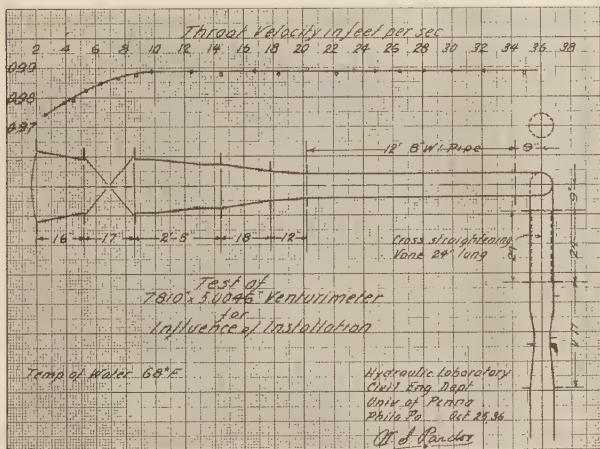 Throat Velocity in feet per sec
2 4 6 8 10 12 14 16 18 20 22 24 26 28 30 32 34 36 38
0.99
0.98
0.97
12' 8" W.I. Pipe
9"
9"
16" 17" 2'-5" 18" 12"
Cross straightening
Vane 24" long
24"
24"
Test of
7.810" x 5.0046" Venturimeter
for
Influence of Installation
Temp of Water 68°F
Hydraulic Laboratory
Civil Eng Dept
Univ of Penna
Phila Pa Oct 25, 36